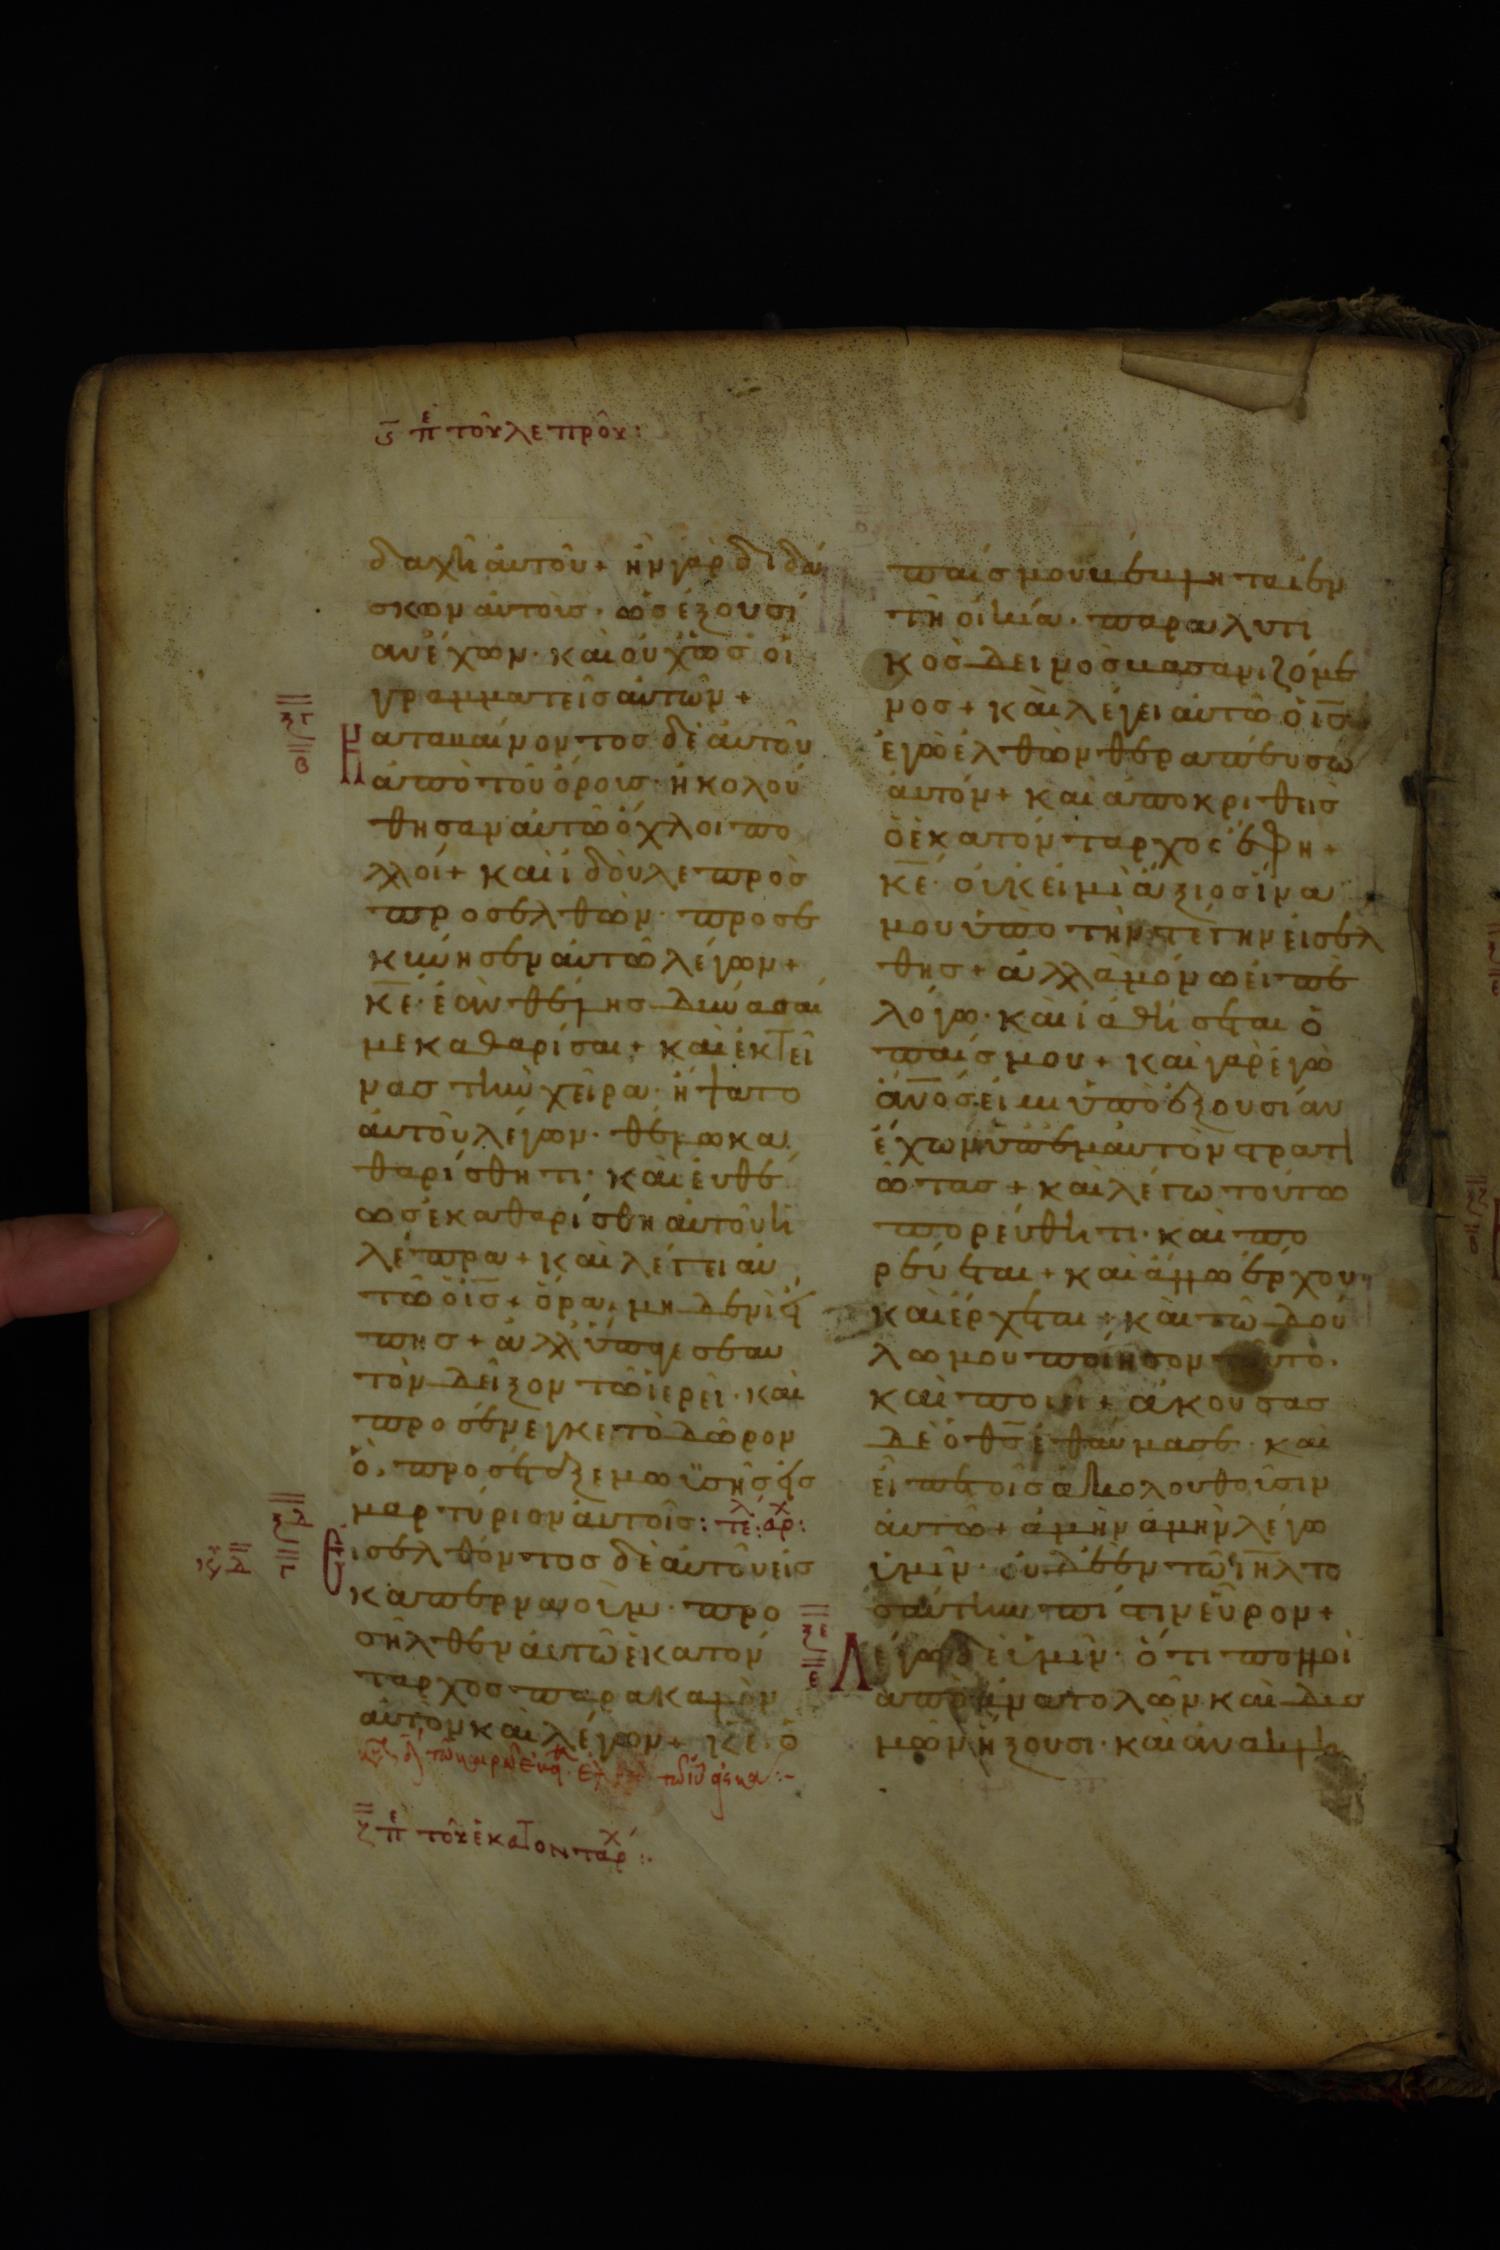 ϛ πε τοῦ λεπροῦ:
δαχῆ ἀυτοῦ + ἦν γὰρ διδά
σκων ἀυτοὶσ · ὡσ ἐξουσί
αν ἔχων · καὶ οὐχ ὡσ οἱ
γραμματεῖσ ἀυτῶν +
ξγ
β
Καταβαίνοντοσ δὲ ἀυτοῦ
ἀπὸ τοῦ ὄρουσ · ἠκολού
θησαν ἀυτῶ ὄχλοι πο
λλοί + καὶ ἰδοὺ λεπρὸσ
προσελθὼν · προσε
κύνησεν ἀυτῶ λέγων +
κε̄ · ἐὰν θέλησ δύνασαί
με καθαρίσαι + καὶ ἐκτεί
νασ τὴν χεῖρα · ἥψατο
ἀυτοῦ λέγων · θέλω κα
θαρίσθητι · καὶ ἐυθέ
ωσ ἐκαθαρίσθη ἀυτοῦ ἡ
λέπρα + καὶ λέγει ἀυ
τῶ ὁ ισ̄ + ὅρα μηδενὶ εἴ
πησ + ἀλλ ὕπαγε σεαυ
τὸν δεῖξον τῶ ἱερεῖ · καὶ
προσένεγκε τὸ δῶρον
ὃ προσέταξε μωϋσῆσ εἰσ
μαρτύριον ἀυτοῖσ : τελ : ἀρχ :
ξδ
γ
Εἰσελθόντοσ δὲ ἀυτοῦ εἰσ
καπερναοὺμ · προ
σῆλθεν ἀυτῶ ἑκατόν
ταρχοσ παρακαλῶν
ἀυτὸν καὶ λέγων + κε̄ · ὁ
ζ πε τοῦ ἑκατοντάρχ :
παίσ μου βέβληται ἐν
τῆ οἰκία · παραλυτι
κὸσ δεινῶσ βασανιζόμε
νοσ + καὶ λέγει ἀυτῶ ὁ ισ̄
ἐγὼ ἐλθὼν θεραπέυσω
ἀυτόν + καὶ ἀποκριθεὶσ
ὁ ἑκατόνταρχοσ ἔφη +
κε̄ · οὐκ εἰμὶ ἄξιοσ ἵνα
μου ὑπὸ τὴν στέγην εἰσέλ
θησ + ἀλλὰ μόνον εἰπὲ
λόγω · καὶ ἰαθήσεται ὁ
παίσ μου + καὶ γὰρ ἐγὼ
ἀνο̄σ εἰμι ὑπὸ ἐξουσίαν
ἔχων ὑπ ἐμαυτὸν στρατι
ώτασ + καὶ λέγω τούτω
πορεύθητι · καὶ πο
ρεύεται + καὶ ἄλλω ἔρχου
καὶ ἔρχεται + καὶ τῶ δού
λω μου ποίησον τοῦτο ·
καὶ ποιεῖ + ἀκούσασ
δὲ ὁ ισ̄ ἐθαύμασε · καὶ
εἶπε τοῖσ ἀκολουθοῦσιν
ἀυτῶ + ἀμὴν ἀμὴν λέγω
ὑμῖν · οὐδὲ ἐν τῶ ιη̄λ το
σαύτην πίστιν εὗρον +
ξε
ε
Λέγω δὲ ὑμῖν · ὅτι πολλοὶ
ἀπὸ ἀνατολῶν καὶ δυσ
μῶν ἥξουσι · καὶ ἀνακλι